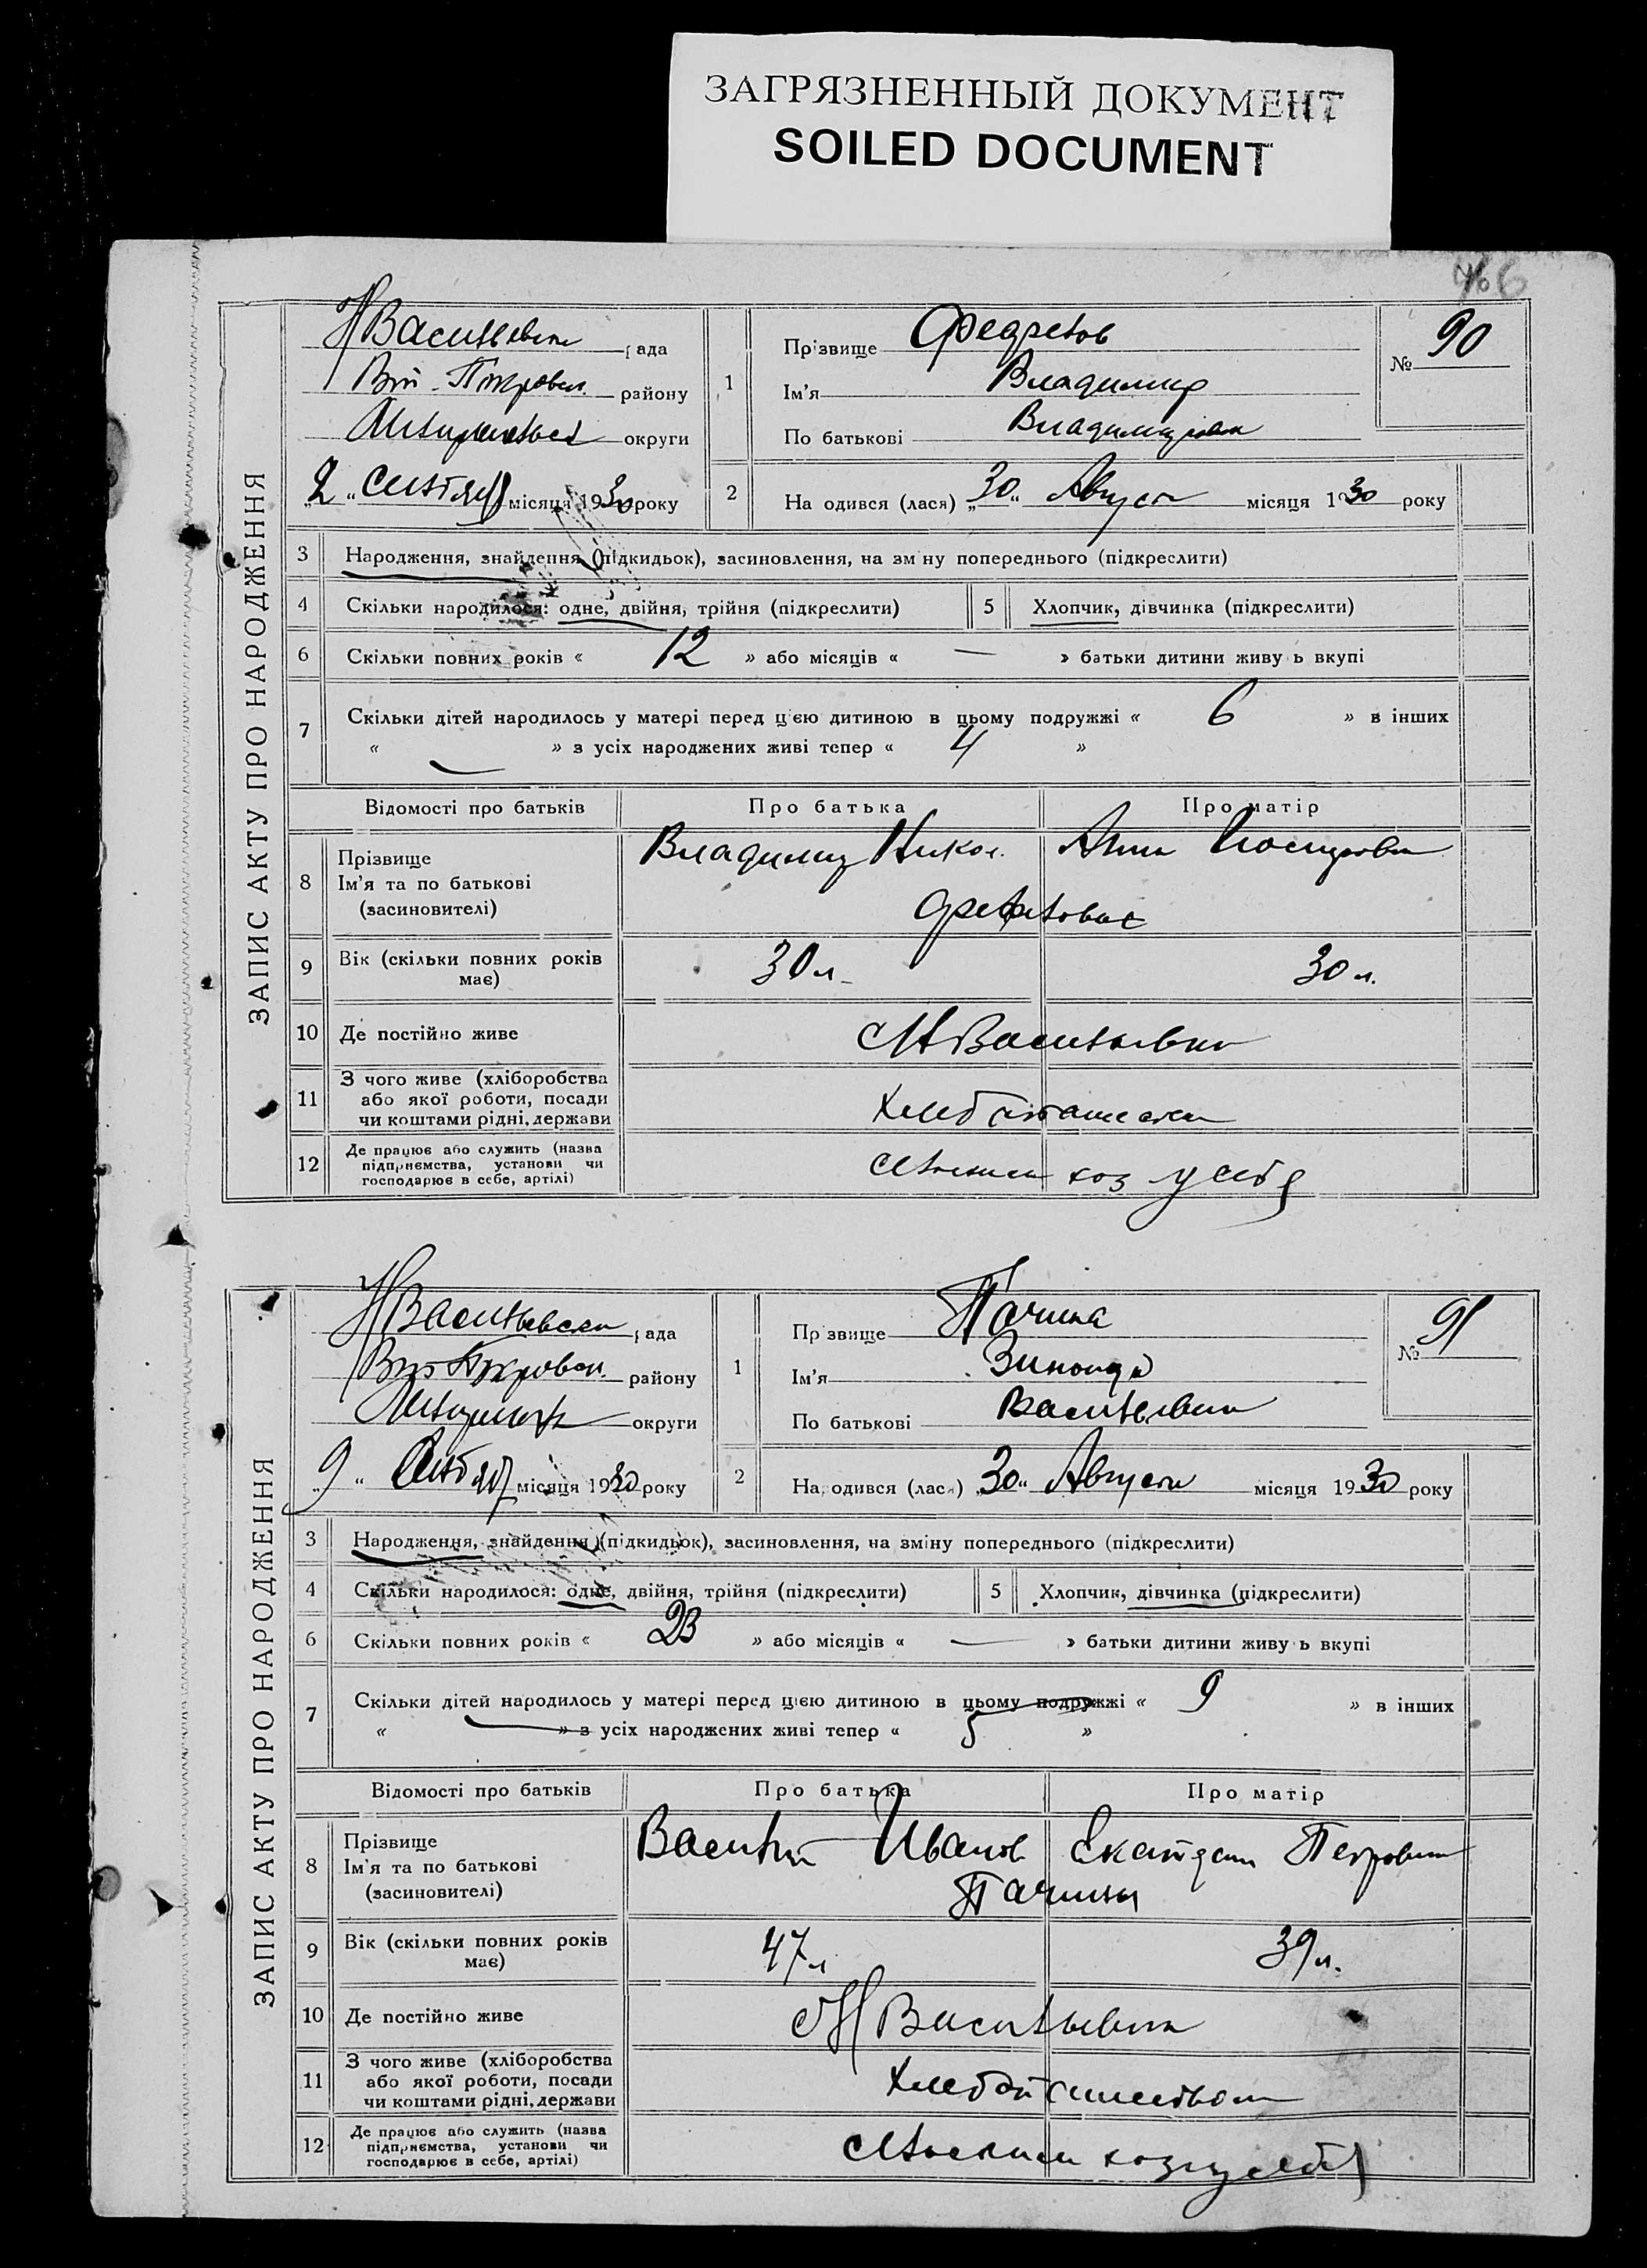 ЗАГРЯЗНЕННЫЙ ДОКУМЕНТ
SOILED DOCUMENT
ЗАПИС АКТУ ПРО НАРОДЖЕННЯ
рада
району
округи
2 " місяця 1930 року
1
Прізвище
Ім'я Владимир
По батькові
№ 90
2
На одився (лася) „30" Август місяця 1930 року
3 Народження, знайдення (підкидьок), засиновлення, на зм ну попереднього (підкреслити)
4 Скільки народилося: одне, двійня, трійня (підкреслити)
5 Хлопчик, дівчинка (підкреслити)
6 Скільки повних років « 12 » або місяців « — » батьки дитини живу ь вкупі
7 Скільки дітей народилось у матері перед цією дитиною в цьому подружжі « 6 » в інших
« — » з усіх народжених живі тепер « 4 »
Відомості про батьків Про батька Про матір
8 Прізвище
Ім'я та по батькові
(засиновителі)
Владимир Никол. Анна
9 Вік (скільки повних років
має)
30 л. 30 л.
10 Де постійно живе
11 З чого живе (хліборобства
або якої роботи, посади
чи коштами рідні, держави
12 Де працює або служить (назва
підприємства, установи чи
господарює в себе, артілі)
хоз у себя
ЗАПИС АКТУ ПРО НАРОДЖЕННЯ
рада
району
округи
9 " місяця 1930 року
1
Пр звище Пачина
Ім'я
По батькові Васильевна
№ 91
2
На одився (лася) „30" Августа місяця 1930 року
3 Народження, знайдення (підкидьок), засиновлення, на зміну попереднього (підкреслити)
4 Скільки народилося: одне, двійня, трійня (підкреслити)
5 Хлопчик, дівчинка (підкреслити)
6 Скільки повних років « 23 » або місяців « — » батьки дитини живу ь вкупі
7 Скільки дітей народилось у матері перед цією дитиною в цьому подружжі « 9 » в інших
« — » з усіх народжених живі тепер « 5 »
Відомості про батьків Про батька Про матір
8 Прізвище
Ім'я та по батькові
(засиновителі)
Василий Иванов Петровна
Пачины
9 Вік (скільки повних років
має)
47 л 39 л.
10 Де постійно живе
11 З чого живе (хліборобства
або якої роботи, посади
чи коштами рідні, держави
12 Де працює або служить (назва
підприємства, установи чи
господарює в себе, артілі)